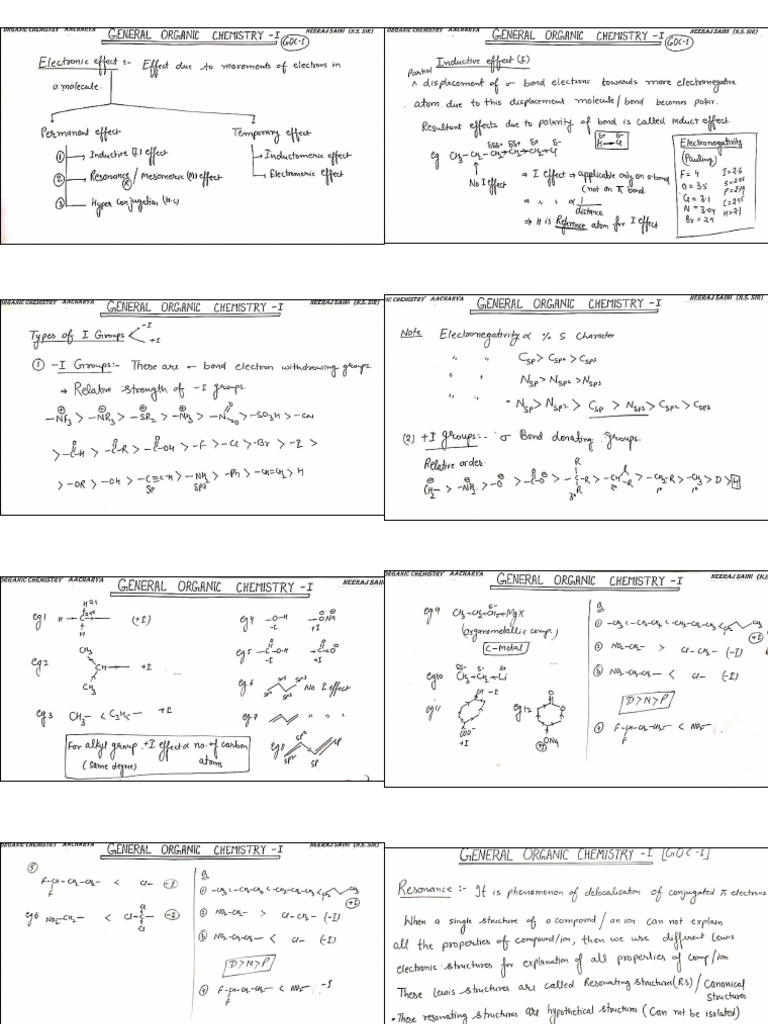 ORGANIC CHEMISTRY AACHARYA GENERAL ORGANIC CHEMISTRY -I NEERAJ SAINI (N.S. SIR)
GOC-I
Electronic effect :- Effect due to movements of electrons in
a molecule.
Permanent effect Temporary effect
① Inductive (I) effect → Inductomeric effect
② Resonance (R) / Mesomeric (M) effect → Electromeric effect
③ Hyper Conjugation (H.C)
ORGANIC CHEMISTRY AACHARYA GENERAL ORGANIC CHEMISTRY -I NEERAJ SAINI (N.S. SIR)
GOC-I
Inductive effect (I)
Partial
^ displacement of σ bond electrons towards more electronegative
atom. due to this displacement molecule/bond becomes polar.
Resultant effects due to polarity of bond is called induct effect
eg CH₃-CH₂-CH₂→CH₂→Cl
δδδ+ δδ+ δ+ δ-
No I effect
⇒ I effect → applicable only on σ-bond
(not on π bond.
⇒ " " ∝ 1/distance
⇒ H is Reference atom for I effect
Electronegativity
(Pauling)
F = 4 I = 2.5
O = 3.5
N = 3.04 H = 2.1
ORGANIC CHEMISTRY AACHARYA GENERAL ORGANIC CHEMISTRY -I NEERAJ SAINI (N.S. SIR)
Types of I Groups < -I
+I
① -I Groups:- These are σ- bond electron withdrawing groups.
→ Relative strength of -I groups.
-NF₃ > -NR₃ > -SR₂ > -NH₃ > -NO₂ > -SO₃H > -CN
> -C-H > -C-R > -C-OH > -F > -Cl > -Br > -I >
> -OR > -OH > -C≡C-H > -NH₂ > -Ph > -CH=CH₂ > H
sp
ORGANIC CHEMISTRY AACHARYA GENERAL ORGANIC CHEMISTRY -I NEERAJ SAINI (N.S. SIR)
Note Electronegativity ∝ % S Character
" " Csp > Csp2 > Csp3
" " Nsp > Nsp2 > Nsp3
" Nsp > Nsp2 > Csp > Nsp3 > Csp2 > Csp3
(2) +I groups:- σ Bond donating groups.
Relative order
CH₂ > -NH > -O > -C-O > -C-R > -CH-R > -CH₂-R > -CH₃ > D > H
3° 2° 1°
ORGANIC CHEMISTRY AACHARYA GENERAL ORGANIC CHEMISTRY -I NEERAJ SAINI
eg1 H-C- (+I)
H
eg2 CH₃
CH- +I
CH₃
eg3 CH₃- < C₂H₅- +I
For alkyl group. +I effect ∝ no. of carbon
(Same degree) atoms
eg4 -O-H -ONa
-I +I
eg5 -C-OH -C-O
-I +I
eg6 No I effect
sp³ sp³ sp³ sp³
eg7 " " "
eg8 sp² sp² sp sp
ORGANIC CHEMISTRY AACHARYA GENERAL ORGANIC CHEMISTRY -I NEERAJ SAINI (N.S.
eg9 CH₃-CH₂-CH₂-MgX
(Organometallic comp.)
C-Metal
eg10 CH₃→CH₂→Li
eg11 OH -I
COO⁻
+I
eg12 O
ONa
Q.
① -CH₃ < -CH₂-CH₃ < -CH₂-CH₂-CH₃ < CH₃
+I
② NO₂-CH₂- > Cl-CH₂- (-I)
③ NO₂-CH₂-CH₂- < Cl- (-I)
D>N>P
④ F-CH-CH₂-CH₂- < NO₂-
F
ORGANIC CHEMISTRY AACHARYA GENERAL ORGANIC CHEMISTRY -I NEERAJ SAINI (N.S. SIR)
⑤
F-CH-CH₂-CH₂- < Cl- -I
F
eg6 NO₂-CH₂- < Cl-C- -I
Cl
Cl
Q.
① -CH₃ < -CH₂-CH₃ < -CH₂-CH₂-CH₃ < CH₃
+I
② NO₂-CH₂- > Cl-CH₂- (-I)
③ NO₂-CH₂-CH₂- < Cl- (-I)
D>N>P
④ F-CH-CH₂-CH₂- < NO₂- -I
F
GENERAL ORGANIC CHEMISTRY -I [GOC-I]
Resonance :- It is phenomenon of delocalisation of conjugated π electrons
When a single structure of a compound/an ion can not explain
all the properties of compound/ion, then we use different Lewis
electronic structures for explanation of all properties of comp/ion
These Lewis structures are called Resonating structures (R.S)/Canonical
Structures
• These resonating structures are hypothetical structures (Can not be isolated)